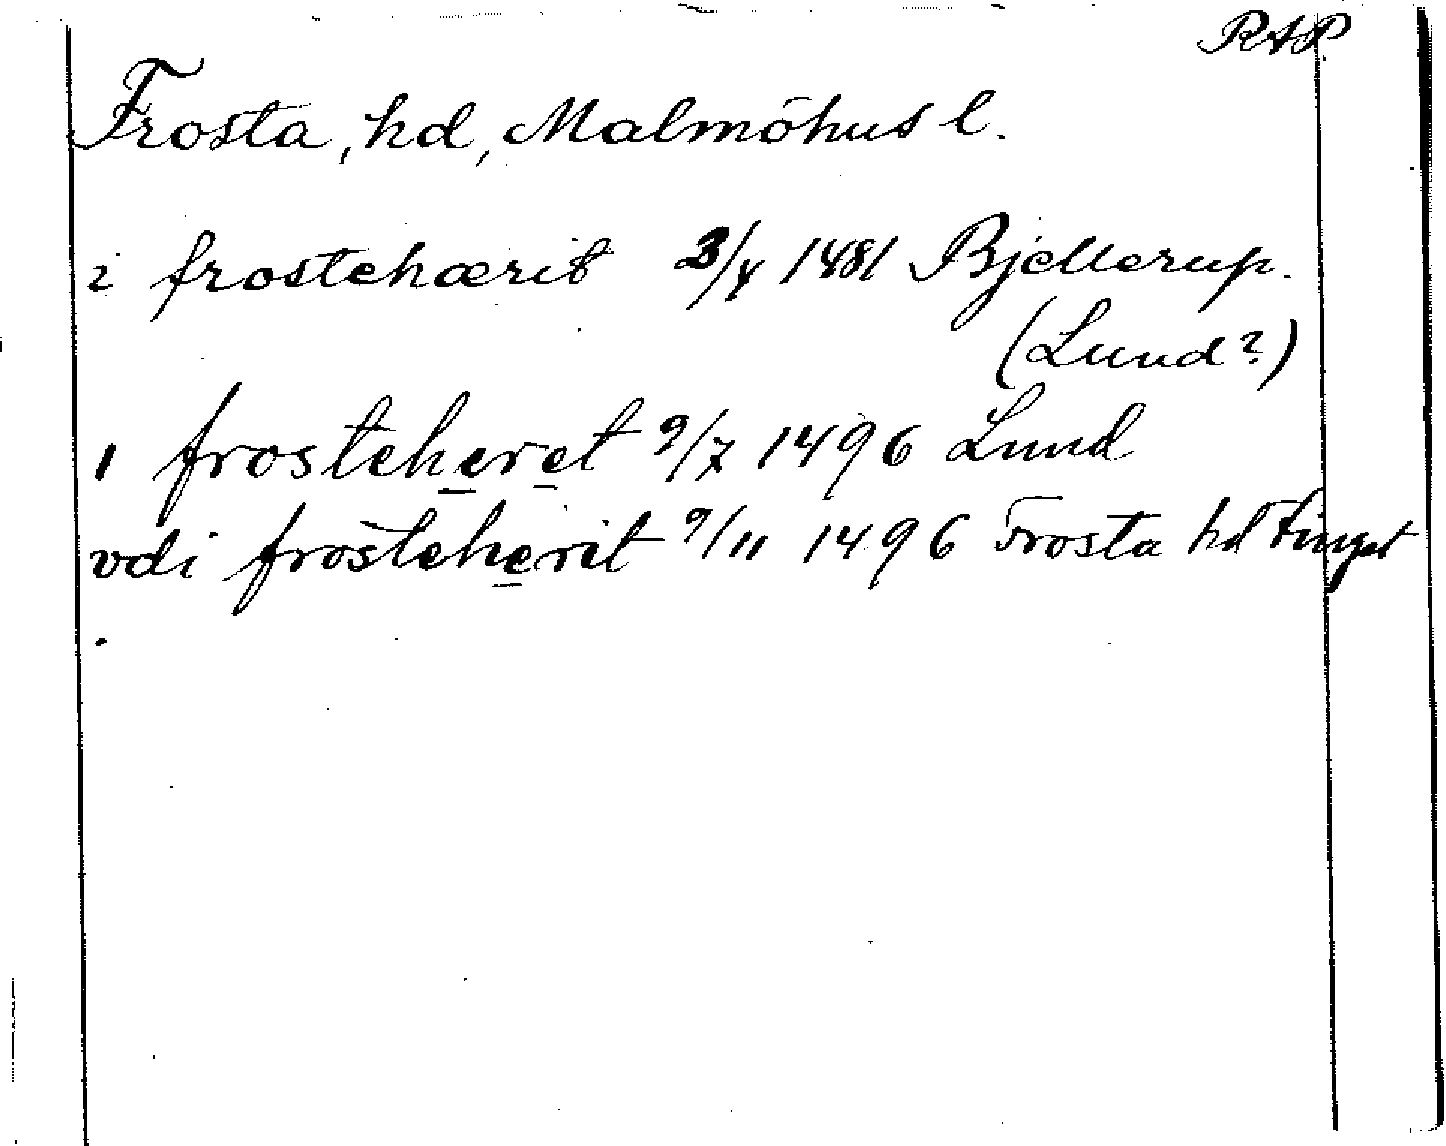 RAP
Frosta, hd, Malmöhus l.
i frostehærit 3/4 1481 Bjellerup.
(Lund?)
I frosteheret 9/7 1496 Lund
vdi frosteherit 9/11 1496 Frosta hd tinget